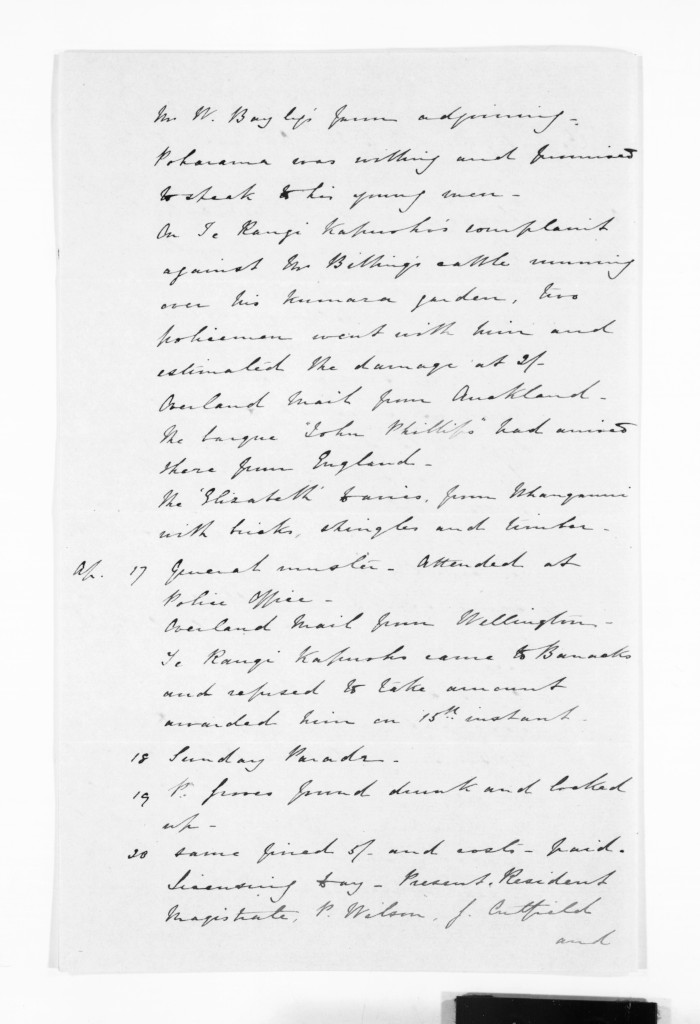 Mr W. Bayly's farm adjoining -
Poharama was willing and promised
to speak to his young men -
On Te Rangi Kapuoho's complaint
against Mr Billing's cattle running
over his kumara garden, two
policemen went with him and
estimated the damage at 2/-
Overland Mail from Auckland -
The barque "John Phillips" had arrived
there from England -
The "Elizabeth" from Whanganui
with bricks, shingles and timber -
Ap. 17 General muster - Attended at
Police Office -
Overland Mail from Wellington -
Te Rangi Kapuoho came to Barracks
and refused to take amount
awarded him on 15th instant -
18 Sunday Parade -
19 P. Groves found drunk and locked
up -
20 same fined 5/- and costs - paid -
Licensing Day - Present, Resident
Magistrate, P. Wilson, J. Cutfield
and